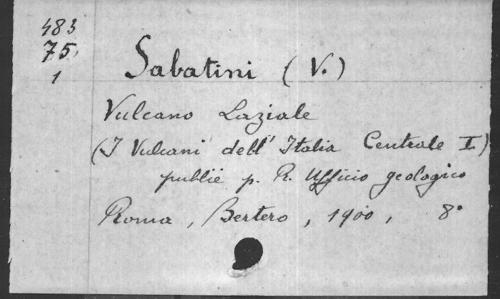 483
75
1
Sabatini (V.)
Vulcano Laziale
(I Vulcani dell' Italia Centrale I)
publié p. R. Ufficio geologico
Roma, Bertero, 1900, 8°